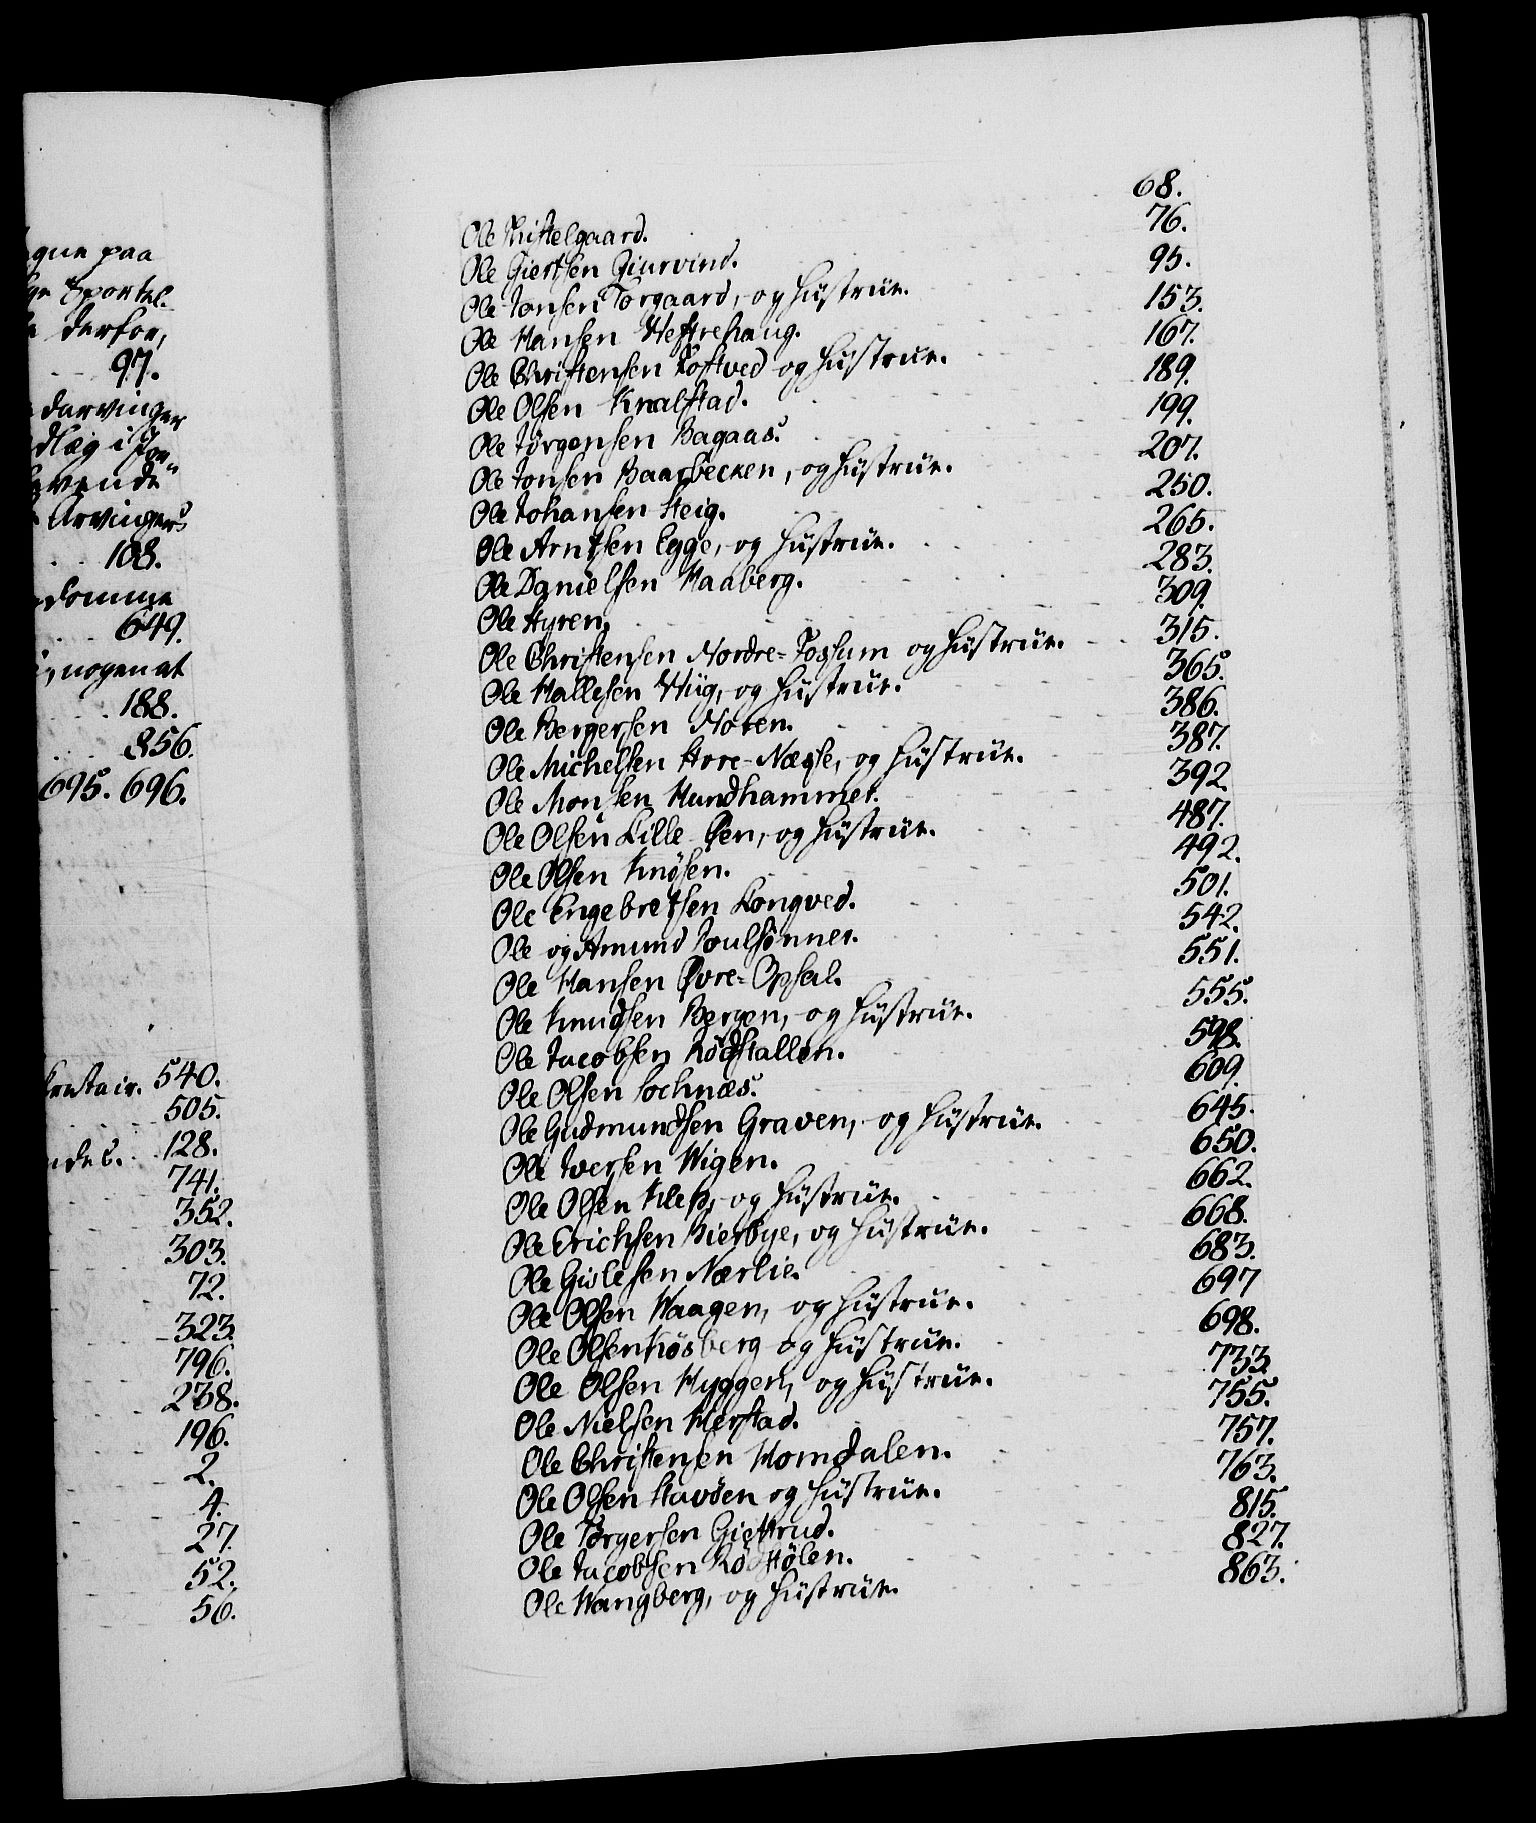 gne paa
ge Sportel
derfor,
97.
darvinger
dlæg i
Arvinger
108.
domme
649.
nogen at
188.
856.
695. 696.
540.
505.
128.
741.
352.
303.
72.
323.
796.
238.
196.
2.
4.
27.
52.
56.
Ole Thistelgaard. 68.
Ole Giertsen Giurvind. 76.
Ole Jonsen Torgaard, og Hustrue. 95.
Ole Hansen Heftrehaug. 153.
Ole Christensen Loftved og Hustrue. 167.
Ole Olsen Knalstad. 189.
Ole Jørgensen Bagaas. 199.
Ole Jonsen Baarbecken, og Hustrue. 207.
Ole Johansen Steig. 250.
Ole Arntsen Egge, og Hustrue. 265.
Ole Danielsen Haaberg. 283.
Ole Styren. 309.
Ole Christensen Nordre-Fossum og Hustrue. 315.
Ole Hallesen Wiig, og Hustrue. 365.
Ole Bergersen Moten. 386.
Ole Michelsen Store-Næsse, og Hustrue. 387.
Ole Monsen Hundhammer. 392.
Ole Olsen Lille-Øen, og Hustrue. 487.
Ole Olsen Knøsen. 492.
Ole Engebretsen Longved. 501.
Ole og Amund Poulsønner. 542.
Ole Hansen Øvre-Opsal. 551.
Ole Knudsen Bergen, og Hustrue. 555.
Ole Jacobsen Rødstallen. 598.
Ole Olsen Sochnæs. 609.
Ole Gudmundsen Graven, og Hustrue. 645.
Ole Iversen Wigen. 650.
Ole Olsen Klep, og Hustrue. 662.
Ole Erichsen Bierbye, og Hustrue. 668.
Ole Gislesen Nærlie. 683.
Ole Olsen Waagen, og Hustrue. 697
Ole Olsen Kiøsberg og Hustrue. 698.
Ole Olsen Hyggen, og Hustrue. 733.
Ole Nielsen Kierstad. 755.
Ole Christensen Homdalen. 757.
Ole Olsen Stavøen og Hustrue. 763.
Ole Børgersen Giettrud. 815.
Ole Jacobsen Rødstølen. 827.
Ole Wangberg, og Hustrue. 863.